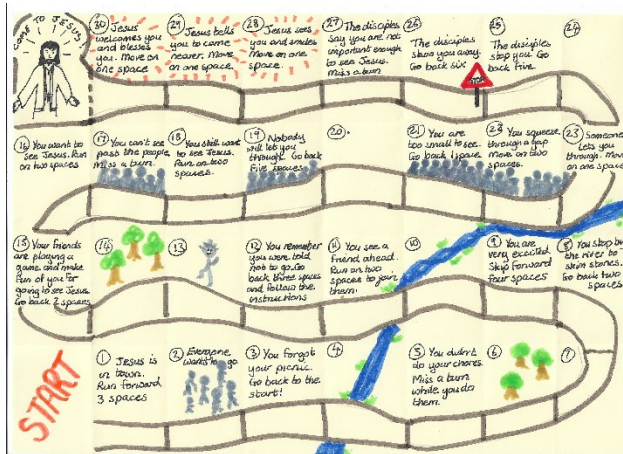 COME TO JESUS
30 Jesus
welcomes you
and blesses
you. Move on
one space
29 Jesus tells
you to come
nearer. Move
on one space.
28 Jesus sees
you and smiles
Move on one
space.
27 The disciples
say you are not
important enough
to see Jesus.
Miss a turn
26
The disciples
shoo you away.
Go back six
25
The disciples
stop you. Go
back five.
24
16 You want to
see Jesus. Run
on two spaces
17 You can't see
past the people,
miss a turn.
18 You still want
to see Jesus.
Run on two
spaces.
19 Nobody
will let you
through. Go back
five spaces
20.
21 You are
too small to see.
Go back 1 space
22 You squeeze
through a gap
Move on two
spaces.
23 Someone
lets you
through. Move
on one space
15 Your friends
are playing a
game and make
fun of you for
going to see Jesus.
Go back 2 spaces
14
13
12 You remember
you were told
not to go. Go
back three spaces
and follow the
instructions
11 You see a
friend ahead.
Run on two
spaces to join
them.
10
9 You are
very excited.
Skip forward
four spaces
8 You stop by
the river to
skim stones.
Go back two
spaces.
START
1 Jesus is
in town.
Run forward
3 spaces
2 Everyone
wants to go
3 You forgot
your picnic.
Go back to the
start!
4
5 You didn't
do your chores.
Miss a turn
while you do
them.
6
7